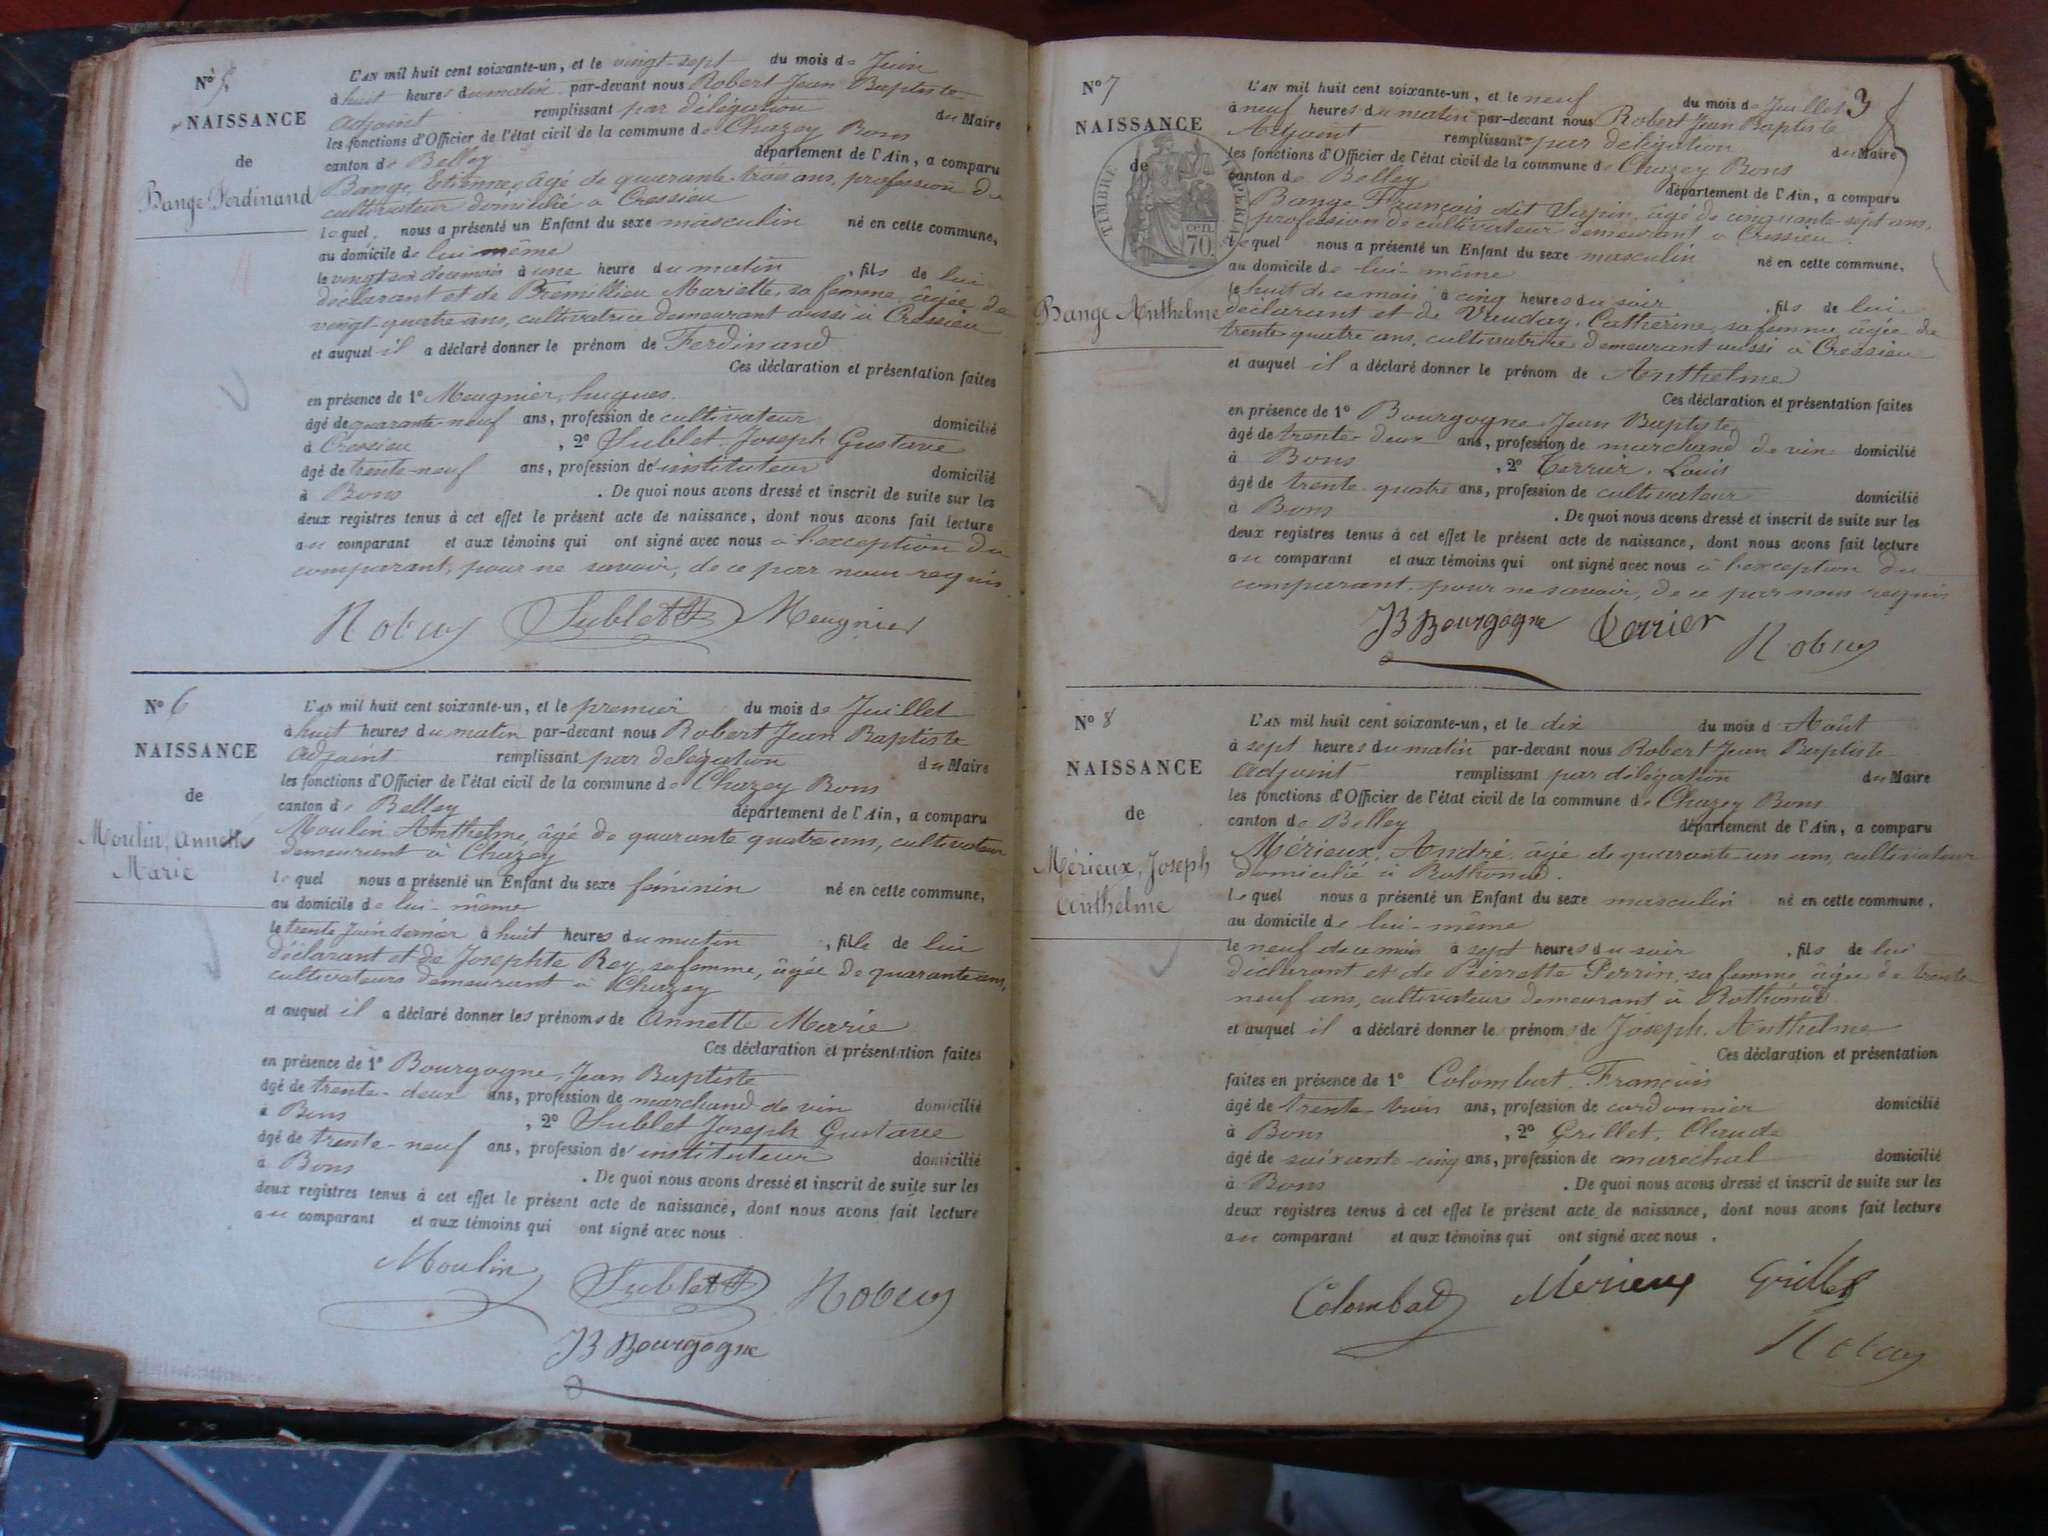 N° 5
NAISSANCE
de
Bange Ferdinand
L'AN mil huit cent soixante-un, et le vingt-sept du mois de Juin
à huit heures du matin par-devant nous Robert Jean Baptiste
adjoint remplissant par délégation du Maire
les fonctions d'Officier de l'état civil de la commune de Chazey Bons
canton de Belley département de l'Ain, a comparu
Bange, Etienne, âgé de quarante-trois ans, profession de
cultivateur domicilié à Cressieu
lequel nous a présenté un Enfant du sexe masculin né en cette commune,
au domicile de lui même
le vingt six de ce mois à une heure du matin, fils de lui
déclarant et de Prémillieu Mariette, sa femme, âgée de
vingt-quatre ans, cultivatrice demeurant aussi à Cressieu
et auquel il a déclaré donner le prénom de Ferdinand
Ces déclaration et présentation faites
en présence de 1° Meugnier, hugues
âgé de quarante-neuf ans, profession de cultivateur domicilié
à Cressieu, 2° Sublet, Joseph Gustave
âgé de trente-neuf ans, profession de instituteur domicilié
à Bons. De quoi nous avons dressé et inscrit de suite sur les
deux registres tenus à cet effet le présent acte de naissance, dont nous avons fait lecture
au comparant et aux témoins qui ont signé avec nous à l'exception du
comparant, pour ne savoir, de ce par nous requis
Robert Sublet Meugnier
N° 6
NAISSANCE
de
Moulin, Annette
Marie
L'AN mil huit cent soixante-un, et le premier du mois de Juillet
à huit heures du matin par-devant nous Robert Jean Baptiste
adjoint remplissant par délégation du Maire
les fonctions d'Officier de l'état civil de la commune de Chazey Bons
canton de Belley département de l'Ain, a comparu
Moulin Anthelme, âgé de quarante quatre ans, cultivateur
demeurant à Chazey
lequel nous a présenté un Enfant du sexe féminin né en cette commune,
au domicile de lui-même
le trente Juin dernier à huit heures du matin, fille de lui
déclarant et de Josephte Rey, sa femme, âgée de quarante ans,
cultivateurs demeurant à Chazey
et auquel il a déclaré donner les prénoms de Annette Marie
Ces déclaration et présentation faites
en présence de 1° Bourgogne, Jean Baptiste
âgé de trente-deux ans, profession de marchand de vin domicilié
à Bons, 2° Sublet Joseph Gustave
âgé de trente-neuf ans, profession de instituteur domicilié
à Bons. De quoi nous avons dressé et inscrit de suite sur les
deux registres tenus à cet effet le présent acte de naissance, dont nous avons fait lecture
au comparant et aux témoins qui ont signé avec nous.
Moulin Sublet Robert
JB Bourgogne
3
N° 7
NAISSANCE
de
TIMBRE IMPERIAL
CEN. 70
Bange Anthelme
L'AN mil huit cent soixante-un, et le neuf du mois de Juillet
à neuf heures du matin par-devant nous Robert Jean Baptiste
Adjoint remplissant par délégation du Maire
les fonctions d'Officier de l'état civil de la commune de Chazey Bons
canton de Belley département de l'Ain, a comparu
Bange François dit Sapin, âgé de cinquante-sept ans,
profession de cultivateur demeurant à Cressieu.
lequel nous a présenté un Enfant du sexe masculin né en cette commune,
au domicile de lui-même
le huit de ce mois à cinq heures du soir, fils de lui
déclarant et de Vauday, Catherine, sa femme, âgée de
trente-quatre ans, cultivatrice demeurant aussi à Cressieu
et auquel il a déclaré donner le prénom de Anthelme
Ces déclaration et présentation faites
en présence de 1° Bourgogne Jean Baptiste
âgé de trente-deux ans, profession de marchand de vin domicilié
à Bons, 2° Terrier, Louis
âgé de trente-quatre ans, profession de cultivateur domicilié
à Bons. De quoi nous avons dressé et inscrit de suite sur les
deux registres tenus à cet effet le présent acte de naissance, dont nous avons fait lecture
au comparant et aux témoins qui ont signé avec nous à l'exception du
comparant pour ne savoir, de ce par nous requis
JB Bourgogne Terrier
Robert
N° 8
NAISSANCE
de
Mérieux, Joseph
Anthelme
L'AN mil huit cent soixante-un, et le dix du mois d'Août
à sept heures du matin par-devant nous Robert Jean Baptiste
adjoint remplissant par délégation du Maire
les fonctions d'Officier de l'état civil de la commune de Chazey Bons
canton de Belley département de l'Ain, a comparu
Mérieux, André, âgé de quarante-un ans, cultivateur
domicilié à Rothonod.
lequel nous a présenté un Enfant du sexe masculin né en cette commune,
au domicile de lui-même
le neuf de ce mois à sept heures du soir, fils de lui
déclarant et de Pierrette Perrin, sa femme, âgée de trente
neuf ans, cultivateurs demeurant à Rothonod
et auquel il a déclaré donner le prénom de Joseph Anthelme
Ces déclaration et présentation
faites en présence de 1° Colombat, François
âgé de trente-trois ans, profession de cordonnier domicilié
à Bons, 2° Grillet, Claude
âgé de soixante-cinq ans, profession de maréchal domicilié
à Bons. De quoi nous avons dressé et inscrit de suite sur les
deux registres tenus à cet effet le présent acte de naissance, dont nous avons fait lecture
au comparant et aux témoins qui ont signé avec nous.
Colombat Mérieux Grillet
Robert